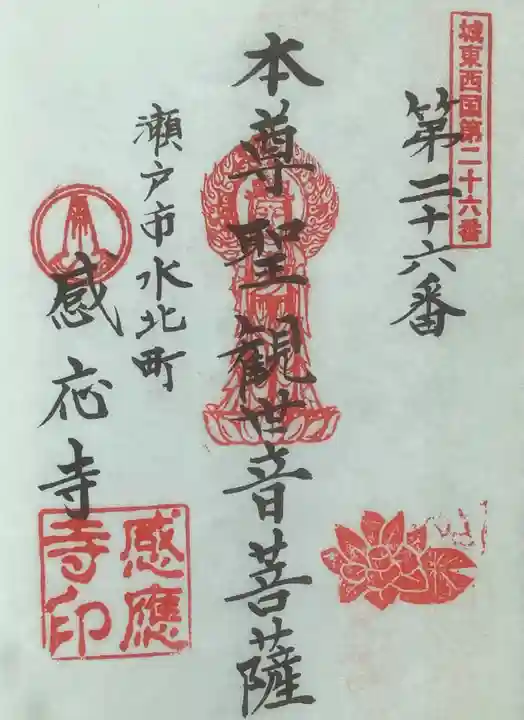 城東西国第二十六番
第二十六番
本尊聖観世音菩薩
瀬戸市水北町
感応寺
感應寺印